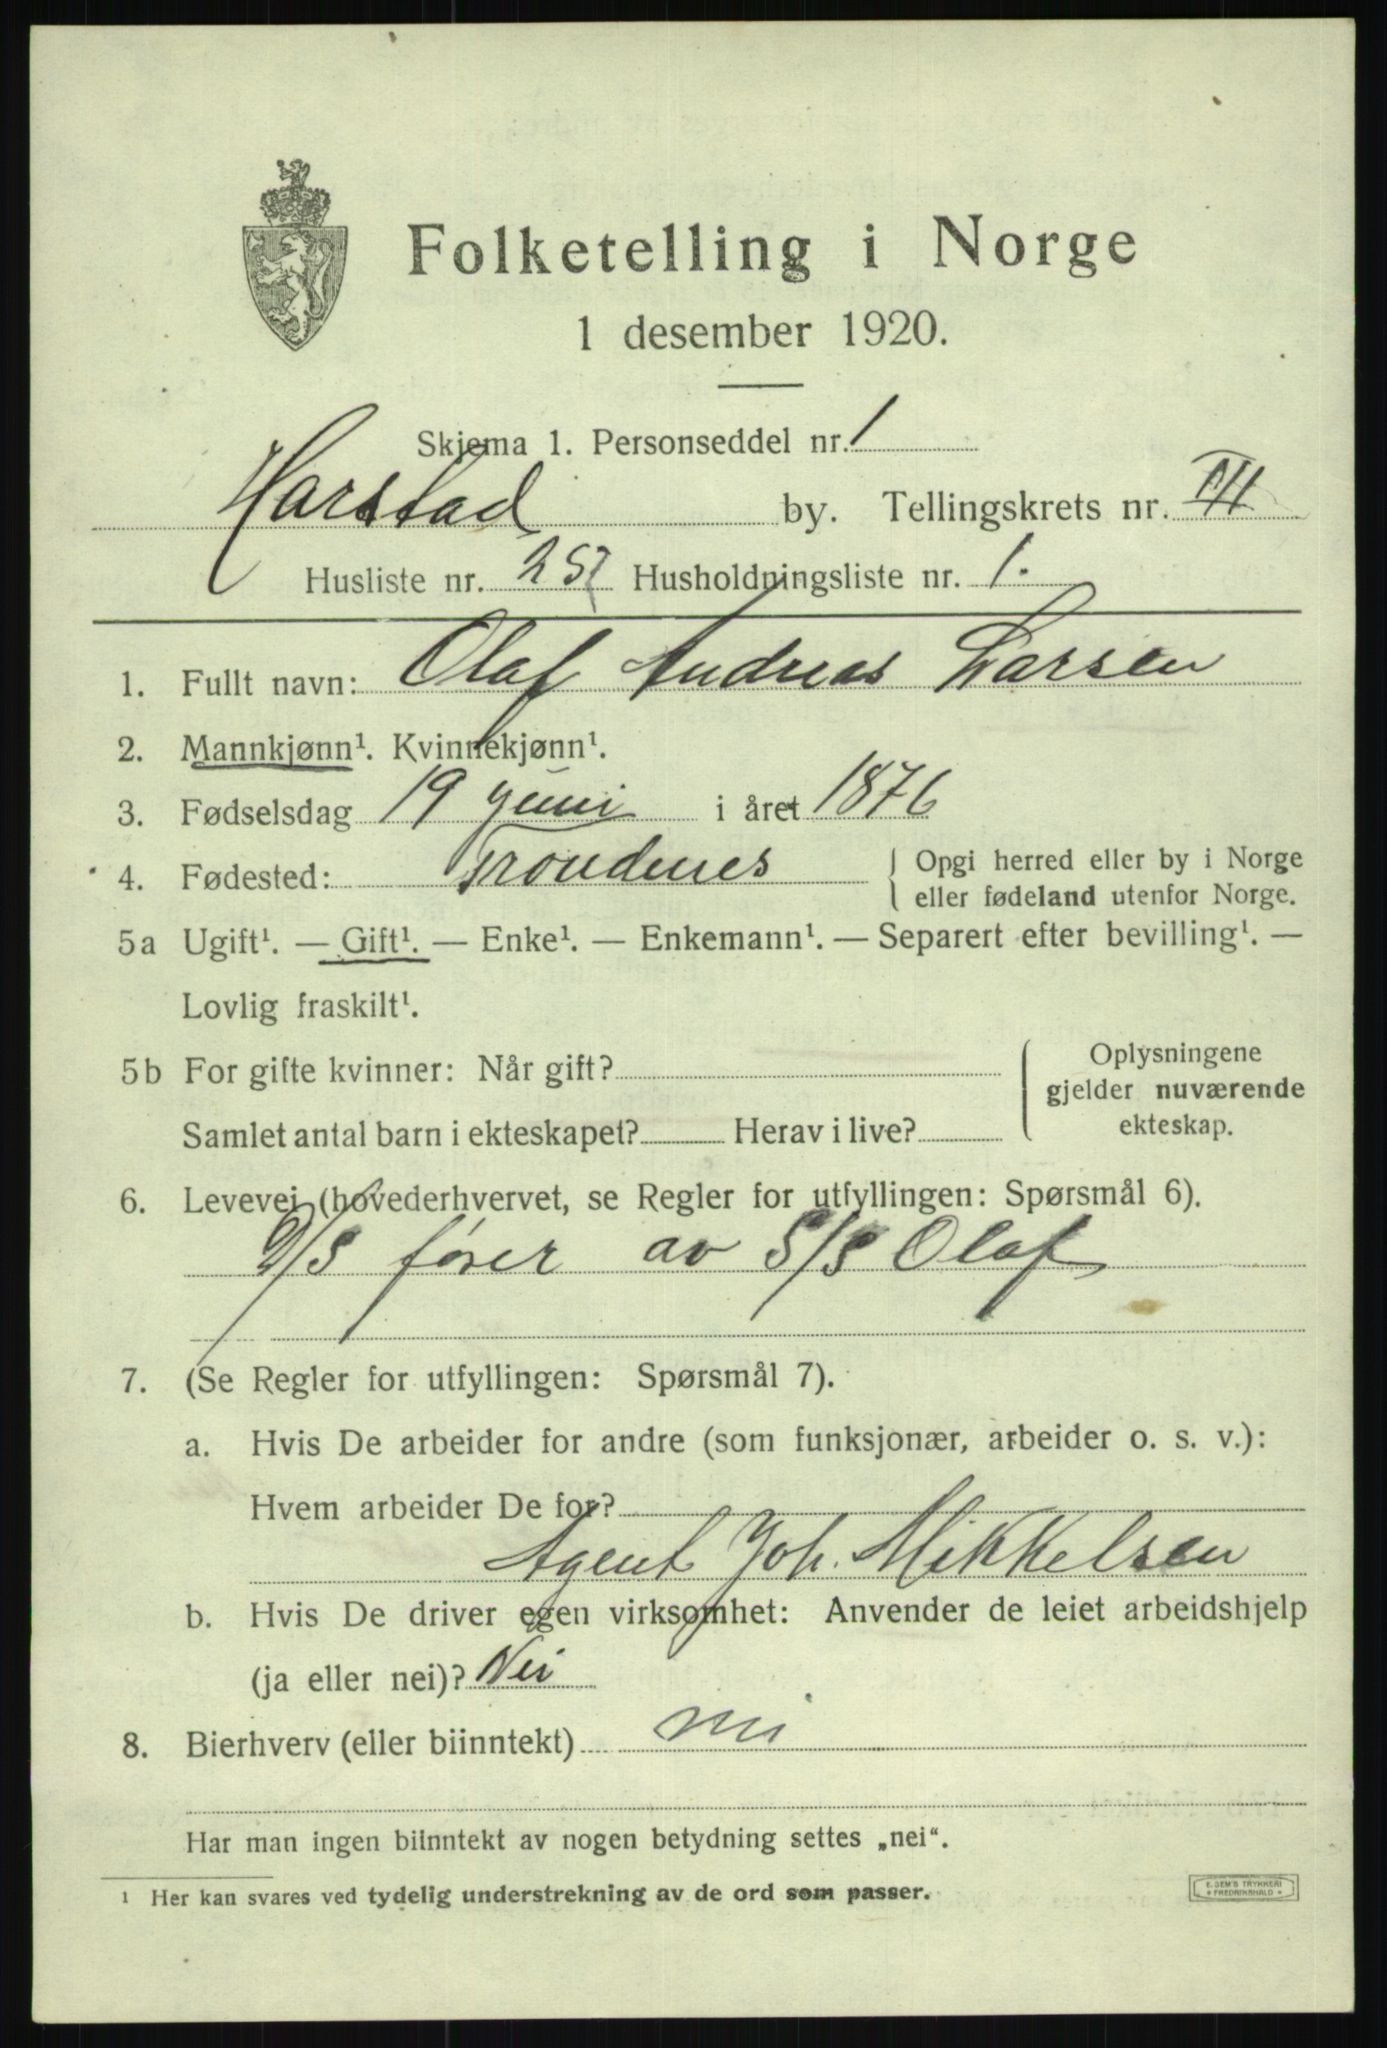 Folketelling i Norge
1 desember 1920.
Skjema 1. Personseddel nr. 1
Harstad by. Tellingskrets nr.
Husliste nr. 257 Husholdningsliste nr. 1.
1. Fullt navn: Olaf Andreas Larsen
2. Mannkjønn¹. Kvinnekjønn¹.
3. Fødselsdag 19 juni i året 1876
4. Fødested: Trondenes { Opgi herred eller by i Norge
eller fødeland utenfor Norge.
5a Ugift¹. — Gift¹. — Enke¹. — Enkemann¹. — Separert efter bevilling¹. —
Lovlig fraskilt¹.
5b For gifte kvinner: Når gift? { Oplysningene
gjelder nuværende
ekteskap.
Samlet antal barn i ekteskapet? Herav i live?
6. Levevei (hovederhvervet, se Regler for utfyllingen: Spørsmål 6).
D/S fører av S/S Olaf
7. (Se Regler for utfyllingen: Spørsmål 7).
a. Hvis De arbeider for andre (som funksjonær, arbeider o. s. v.):
Hvem arbeider De for?
Agent Joh. Mikkelsen
b. Hvis De driver egen virksomhet: Anvender de leiet arbeidshjelp
(ja eller nei)? Nei
8. Bierhverv (eller biinntekt) nei
Har man ingen biinntekt av nogen betydning settes „nei".
¹ Her kan svares ved tydelig understrekning av de ord som passer.
E. SEM'S TRYKKERI
FREDRIKSHALD